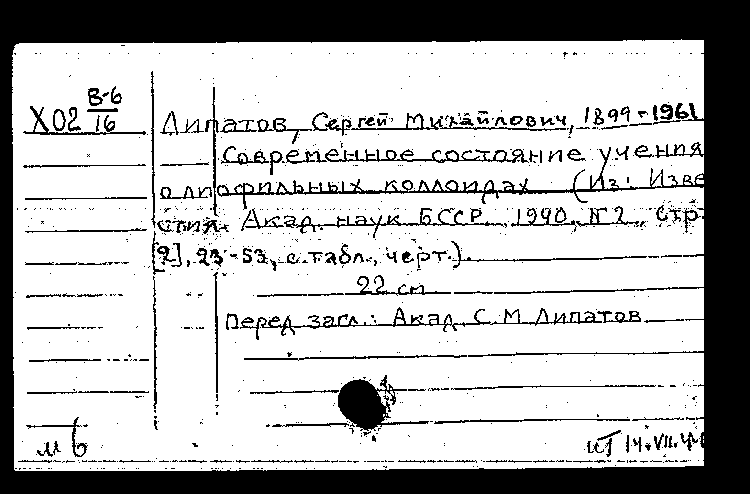 Х02 В-6/16
Липатов, Сергей Михайлович, 1899-1961
Современное состояние учения
о лиофильных коллоидах (Из: Изве
стия. Акад. наук БССР. 1940, N 2, стр.
[2], 23-53, с табл., черт.).
22 см
Перед загл.: Акад. С. М. Липатов
м б